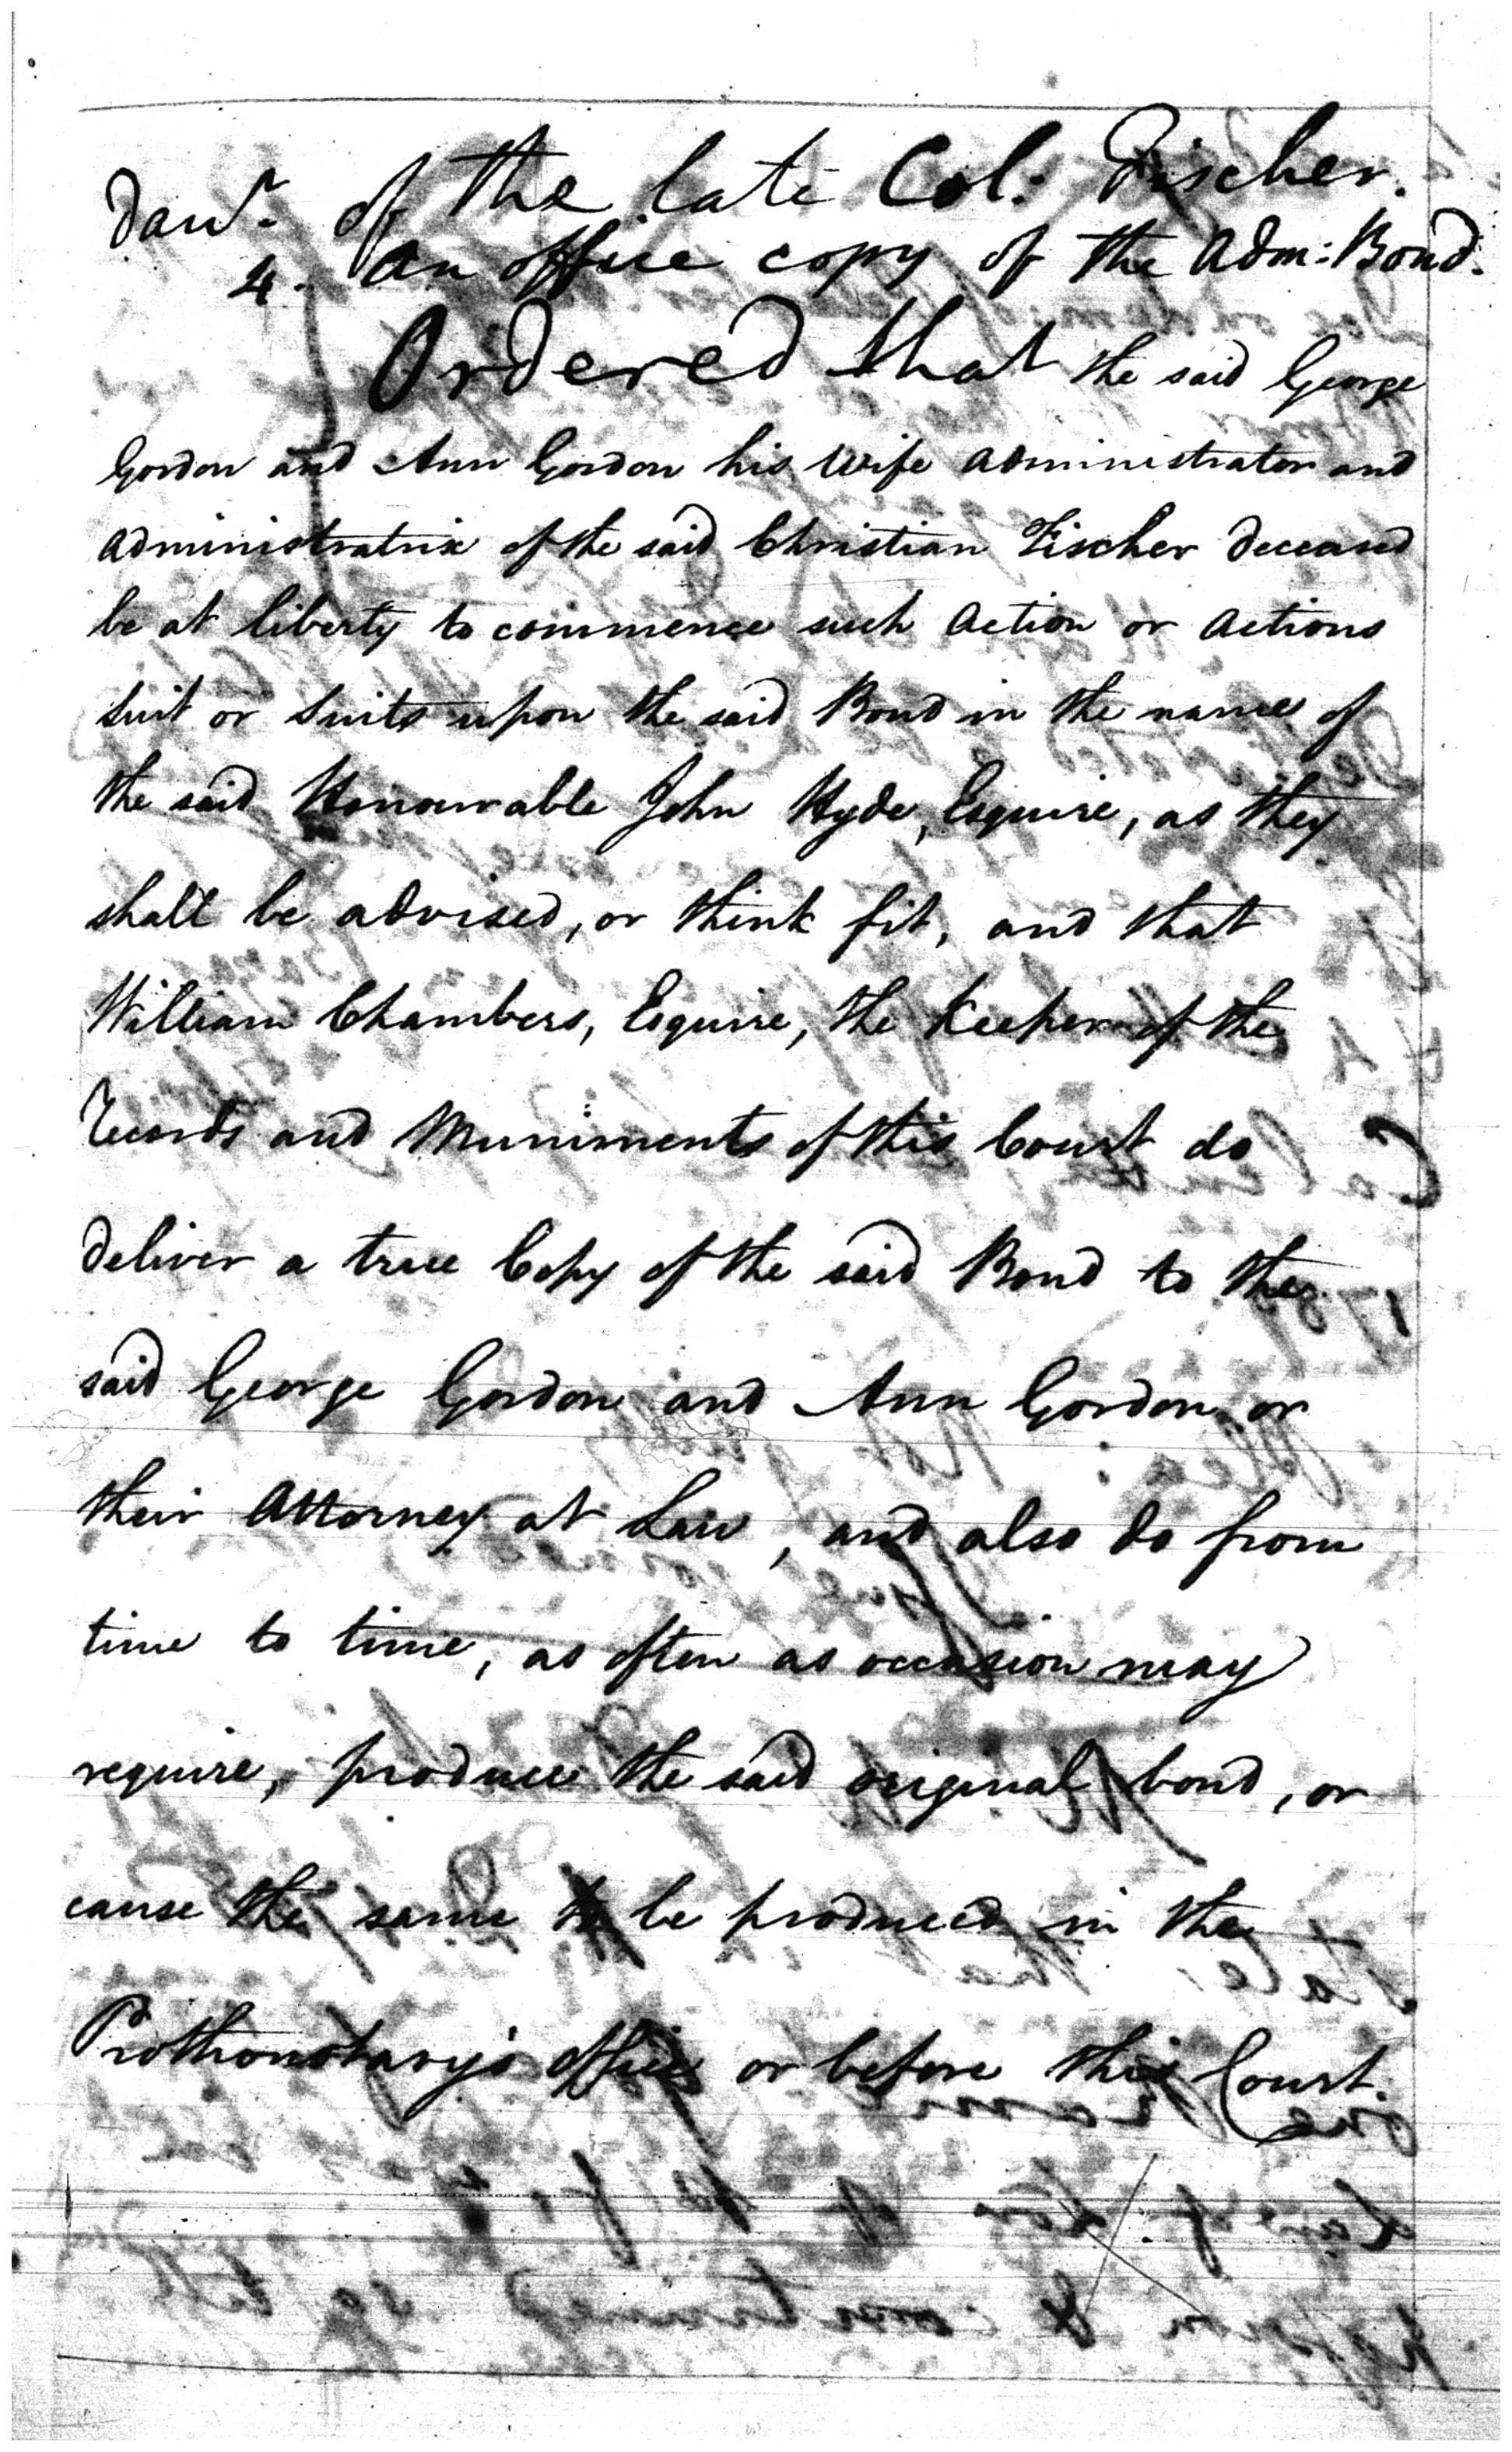 of the late Col: Fischer.
4. An office copy of the Adm: Bond.
Ordered that the said George
Gordon and Ann Gordon his Wife Administrator and
Administratrix of the said Christian Fischer deceased
be at liberty to commence such Action or Actions
Suit or Suits upon the said Bond in the name of
the said Honourable John Hyde, Esquire, as they
shall be advised, or think fit, and that
William Chambers, Esquire, the Keeper of the
Records and Muniments of this Court do
deliver a true Copy of the said Bond to the
said George Gordon and Ann Gordon or
their Attorney at Law, and also do from
time to time, as often as occasion may
require, produce the said original bond, or
cause the same to be produced in the
Prothonotary's office or before this Court.